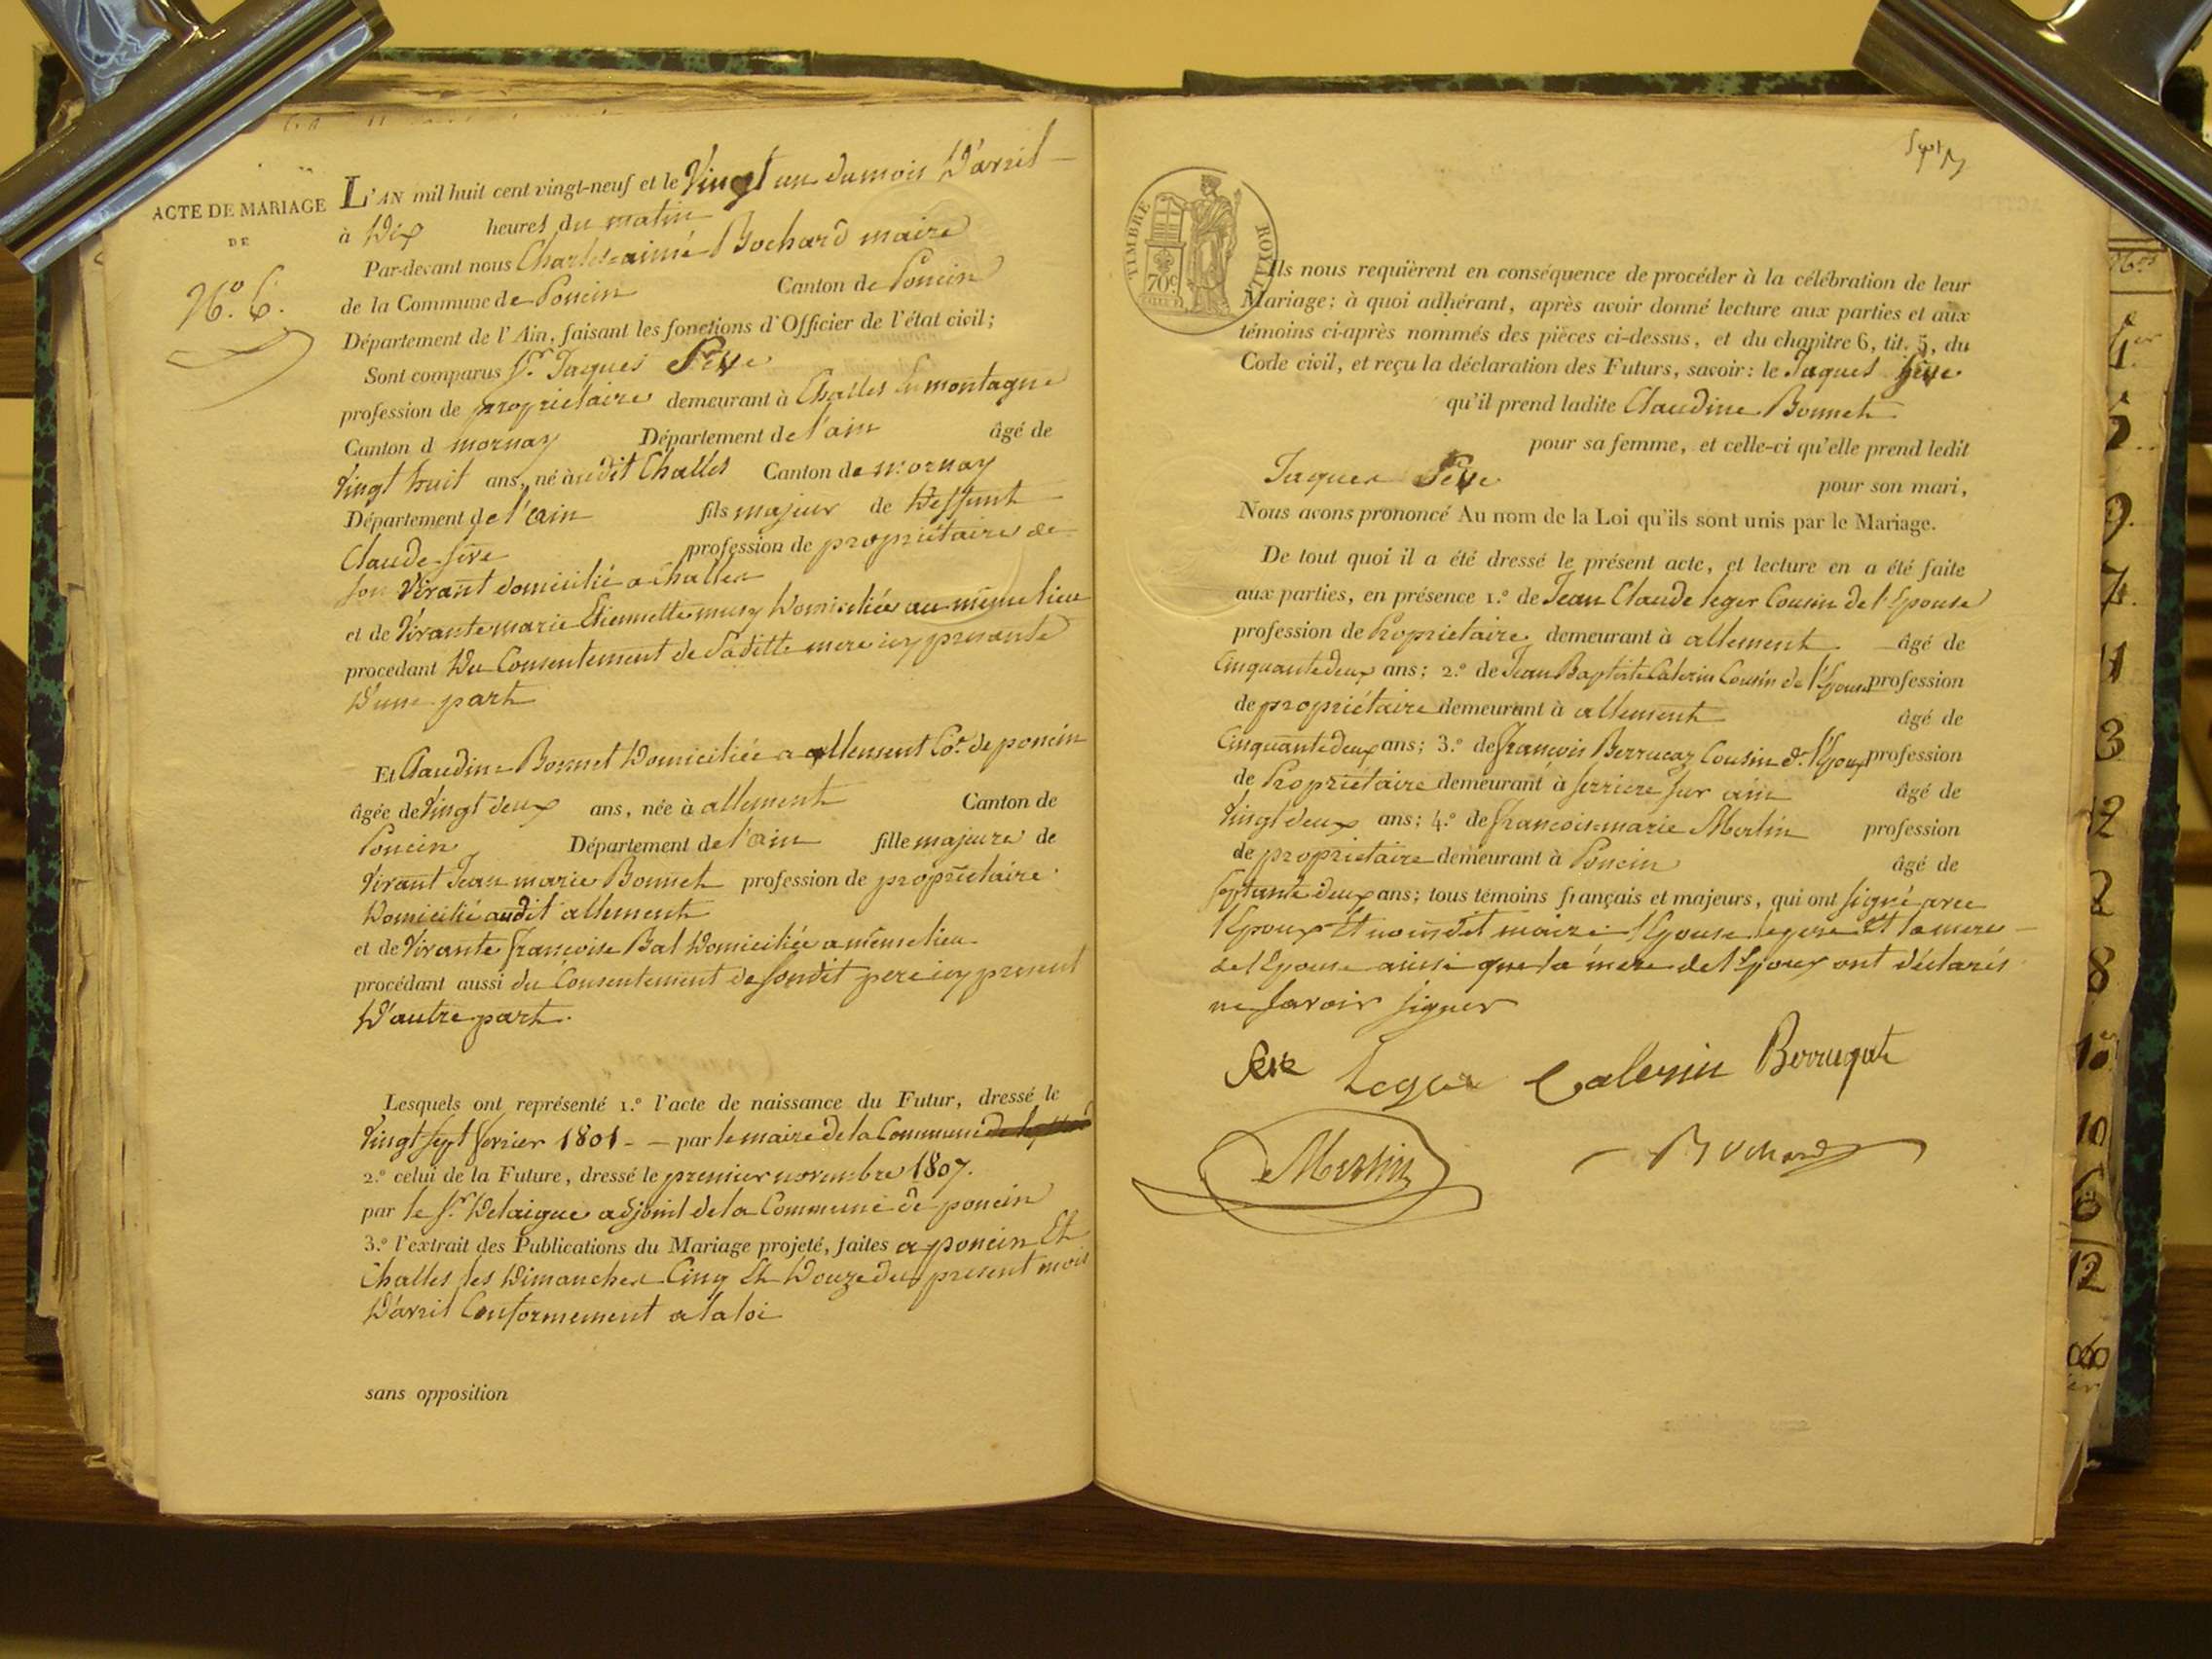 ACTE DE MARIAGE
DE
N.º 6.
L'AN mil huit cent vingt-neuf et le Vingt un du mois D'avril
à Dix heures du matin
Par-devant nous Charles-aimé Bochard maire
de la Commune de Poncin Canton de Poncin
Département de l'Ain, faisant les fonctions d'Officier de l'état civil;
Sont comparus S.r Jaques Sève
profession de propriétaire demeurant à Challes La montagne
Canton d mornay Département de l'ain âgé de
Vingt huit ans, né àudit Challes Canton de mornay
Département de l'ain fils majeur de Deffunt
Claude Sève profession de propriétaire de
son Vivant domicilié a Challes
et de Vivante marie Etiennette musy Domiciliée au même lieu
procedant Du Consentement de Saditte mere icy presente
D'une part
Et Claudine Bonnet Domiciliée a allement Co.ne de poncin
âgée de Vingt deux ans, née à allement Canton de
Poncin Département de l'ain fille majeure de
Vivant Jean marie Bonnet profession de propriétaire
Domicilié audit allement
et de Vivante françoise Bal Domiciliée a même lieu
procédant aussi du Consentement de Sondit pere icy present
D'autre part.
Lesquels ont représenté 1.º l'acte de naissance du Futur, dressé le
Vingt sept fevrier 1801 - - par le maire de la Commune
2.º celui de la Future, dressé le premier novembre 1807.
par le S.r Delaigue adjoint de la Commune de poncin
3.º l'extrait des Publications du Mariage projeté, faites a poncin Et
Challes les Dimanches Cinq Et Douze du present mois
D'avril Conformement a la loi
sans opposition
Sept
TIMBRE ROYAL
70c
Ils nous requièrent en conséquence de procéder à la célébration de leur
Mariage; à quoi adhérant, après avoir donné lecture aux parties et aux
témoins ci-après nommés des pièces ci-dessus, et du chapitre 6, tit. 5, du
Code civil, et reçu la déclaration des Futurs, savoir: le Jaques Sève
qu'il prend ladite Claudine Bonnet
pour sa femme, et celle-ci qu'elle prend ledit
Jaques Sève pour son mari,
Nous avons prononcé Au nom de la Loi qu'ils sont unis par le Mariage.
De tout quoi il a été dressé le présent acte, et lecture en a été faite
aux parties, en présence 1.º de Jean Claude leger Cousin de l'Epouse
profession de Propriétaire demeurant à allement âgé de
Cinquante deux ans; 2.º de Jean Baptiste Calerin Cousin de l'Epouse profession
de propriétaire demeurant à allement âgé de
Cinquante deux ans; 3.º de françois Berrucaz Cousin de l'Epoux profession
de Propriétaire demeurant à serriere sur ain âgé de
Vingt deux ans; 4.º de françois-marie Merlin profession
de propriétaire demeurant à Poncin âgé de
Septante deux ans; tous témoins français et majeurs, qui ont signé avec
l'Epoux Et nousdit maire l'Epouse le pere Et la mere
de l'Epouse ainsi que la mere de l'Epoux ont déclarés
ne Savoir signer
Seve Leger Calerin Berrugat
Merlin Bochard